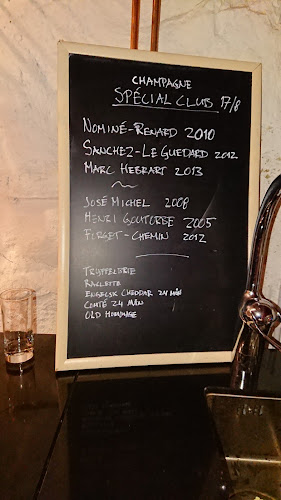 CHAMPAGNE
SPÉCIAL CLUB 17/8
NOMINÉ-RENARD 2010
SANCHEZ-LE GUEDARD 2012
MARC HEBRART 2013
JOSÉ MICHEL 2008
HENRI GOUTORBE 2005
FORGET-CHEMIN 2012
TRYFFELBRIE
RACLETTE
ENGELSK CHEDDAR 24 MÅN
COMTÉ 24 MÅN
OLD HOMMAGE